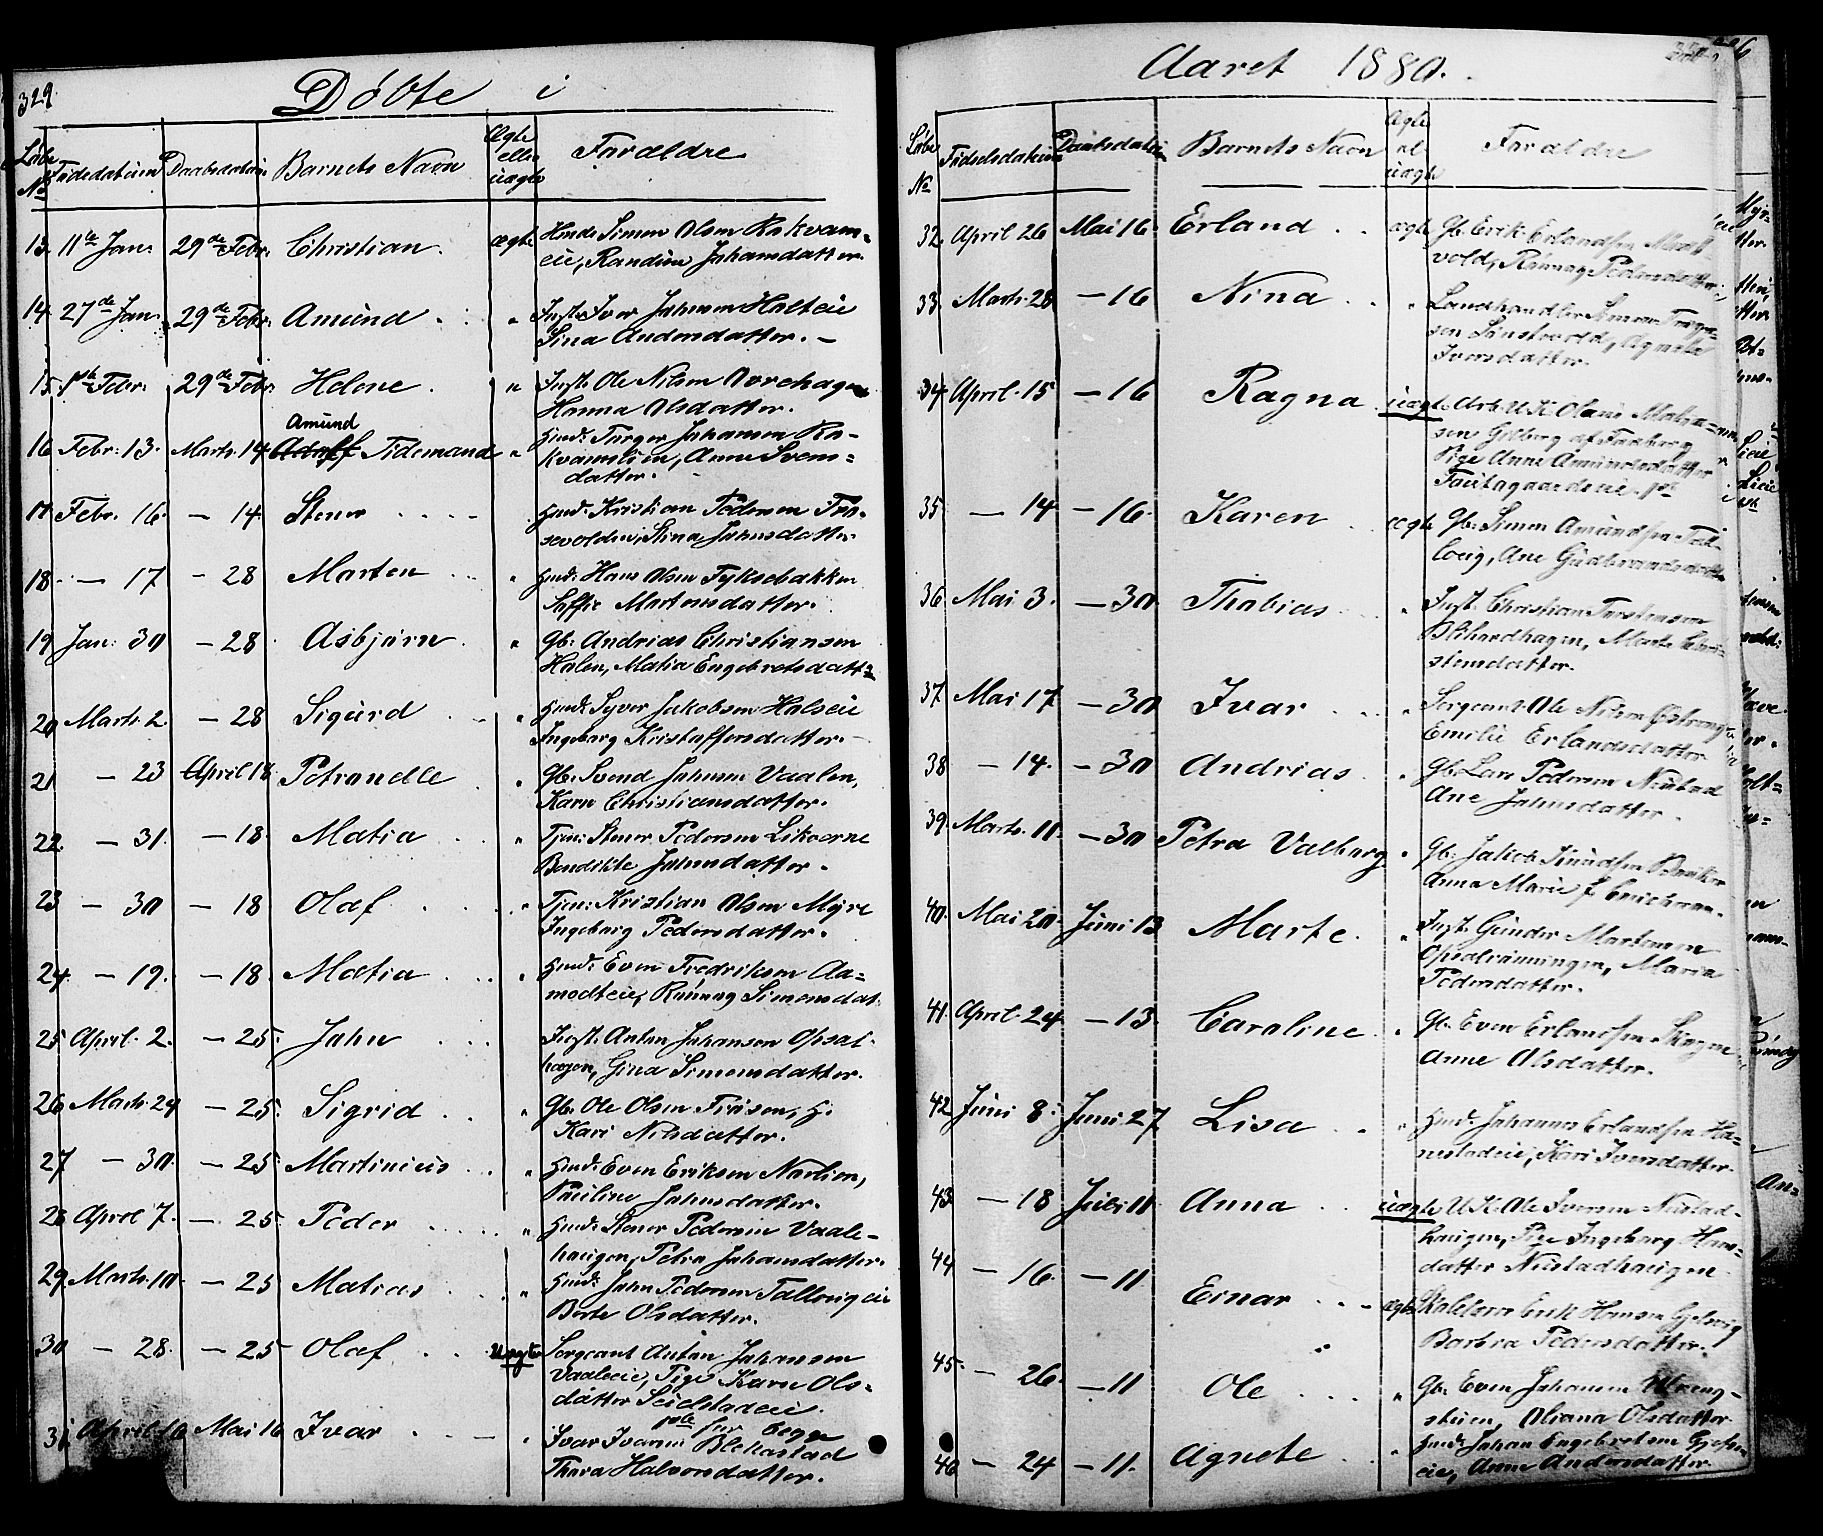 329.
Döbte i
Löbe No Födedatum Daabsdatum Barnets Navn Ægte eller uægte Forældre
13. 11te Jan. 29de Febr. Christian. ægte Husm. Simon Olsen Rokvam=
eie, Randine Johansdatter.
14. 27de Jan. 29de Febr. Amünd . . " Inst. Iver Johnsen Holteie
Sina Andersdatter. -
15. 1ste Febr. 29de Febr. Helene. " Inst. Ole Nilsen
Hanna Olsdatter.
Amünd
16 Febr: 13. Marts. 14 Adolf Tidemand " Husm: Torger Johansen Ro-
kvamslien, Anne Svens=
datter.
17. Febr. 16. - 14. Stener . . . . " Husm: Kristian Pedersen
Stina Johnsdatter
18. - 17 - 28 Morten . . . " Husm: Hans Olsen Tyksebakken
Soffie Mortensdatter.
19 Jan: 30 - 28. Asbjörn . " Gb: Andrias Christiansen
Holen, Matia Engebretsdatt=
20 Marts. 2. - 28 Sigürd . . " Husm: Syver Jakobsen Holseie
Ingeborg Kristoffersdatter. -
21 - 23 April 18. Petronelle . " Gb: Svend Johnsen Vaalen,
Karn Christiansdatter.
22. - 31. - 18. Matia . . " Tjen: Stener Pedersen Likverne
Bendikte Johnsdatter.
23 - 30 - 18 Olaf . . . " Tjen: Kristian Olsen Myre
Ingeborg Pedersdatter.
24. - 19. - 18. Matia . . . " Husm: Even Fredriksen Aa=
modteie, Rönnaug Simensdat.
25 April. 2. - 25. John . . . Inst. Anton Johansen Opsal-
hagen, Gina Simensdatter.
26 Marts. 24 - 25. Sigrid . . " Gb. Ole Olsen
Kari Nilsdatter.
27 - 30. - 25 Martinius . . " Husm: Even Eriksen Norlien,
Pauline Johnsdatter.
28 April 7. - 25. Peder . . . " Husm: Stener Pedersen Vaale-
haugen, Petra Johansdatter.
29. Marts. 10. - 25 Matias . . . " Husm: John Pedersen Tollevigeie
Berte Olsdatter.
30 - 28. - 25 Olaf . . . uægte Sergeant Anton Johansen
Vaaleeie, Pige Karn Ols=
datter
31 April 16 Mai 16 Ivar . . - " Ivar Iversen Blekastad
Thora Halvorsdatter.
Aaret 1880.
Löbe No Födselsdatum Daabsdatum Barnets Navn Ægte el. uægte Forældre
32. April 26 Mai 16. Erland . . ægte Gb. Erik Erlandsen
vold, Rönnaug Pedersdatter.
33. Marts. 28 - 16 Nina . . " Landhandler Simen
sen Agnete
Iversdatter.
34. April. 15 - 16 Ragna uægte Arb. U. K. Olaus
sen Gilberg af Faaberg
Pige Anne Amundsdatter
35 - 14 - 16. Karen . ægte Gb: Simen Amündsen Tol-
levig, Ane Gudbrandsdatter
36. Mai 3. - 30. Thobias . . " Inst. Christian Torstensen
Marte Chri-
stensdatter.
37. Mai 17 - 30 Ivar . . . " Sergeant Ole Nilsen
Emilie Erlandsdatter
38 - 14. - 30 Andrias. " Gb. Lars Pedersen Nüstad
Ane Johnsdatter.
39. Marts. 11. - 30 Petra Valborg " Gb: Jakob Knüdsen
Anna Marie f.
40. Mai 20. Jüni 13 Marte. " Inst. Gunder Mortensen
Maria
Pedersdatter.
41. April 24 - 13. Caroline. " Gb. Even Erlandsen
Anne Olsdatter.
42 Jüni 8. Jüni 27 Lisa . . " Husm. Johannes Erlandsen
Kari Iversdatter.
43 - 18 Jüli 11. Anna . . uægte U. K. Ole Iversen Nüstad-
haugen, Pige Ingeborg Hans=
datter Nüstadhaugen.
44 - 16. - 11 Einar . . ægte Skolelærer Erik Hansen Gjelvig
Barbra Pedersdatter.
45 - 26. - 11 Ole . . . " Gb. Even Johansen
Oliana Olsdatter
46 - 24 - 11. Agnete . . " Husm. Johan Engebretsen
eie, Anne Andersdatter